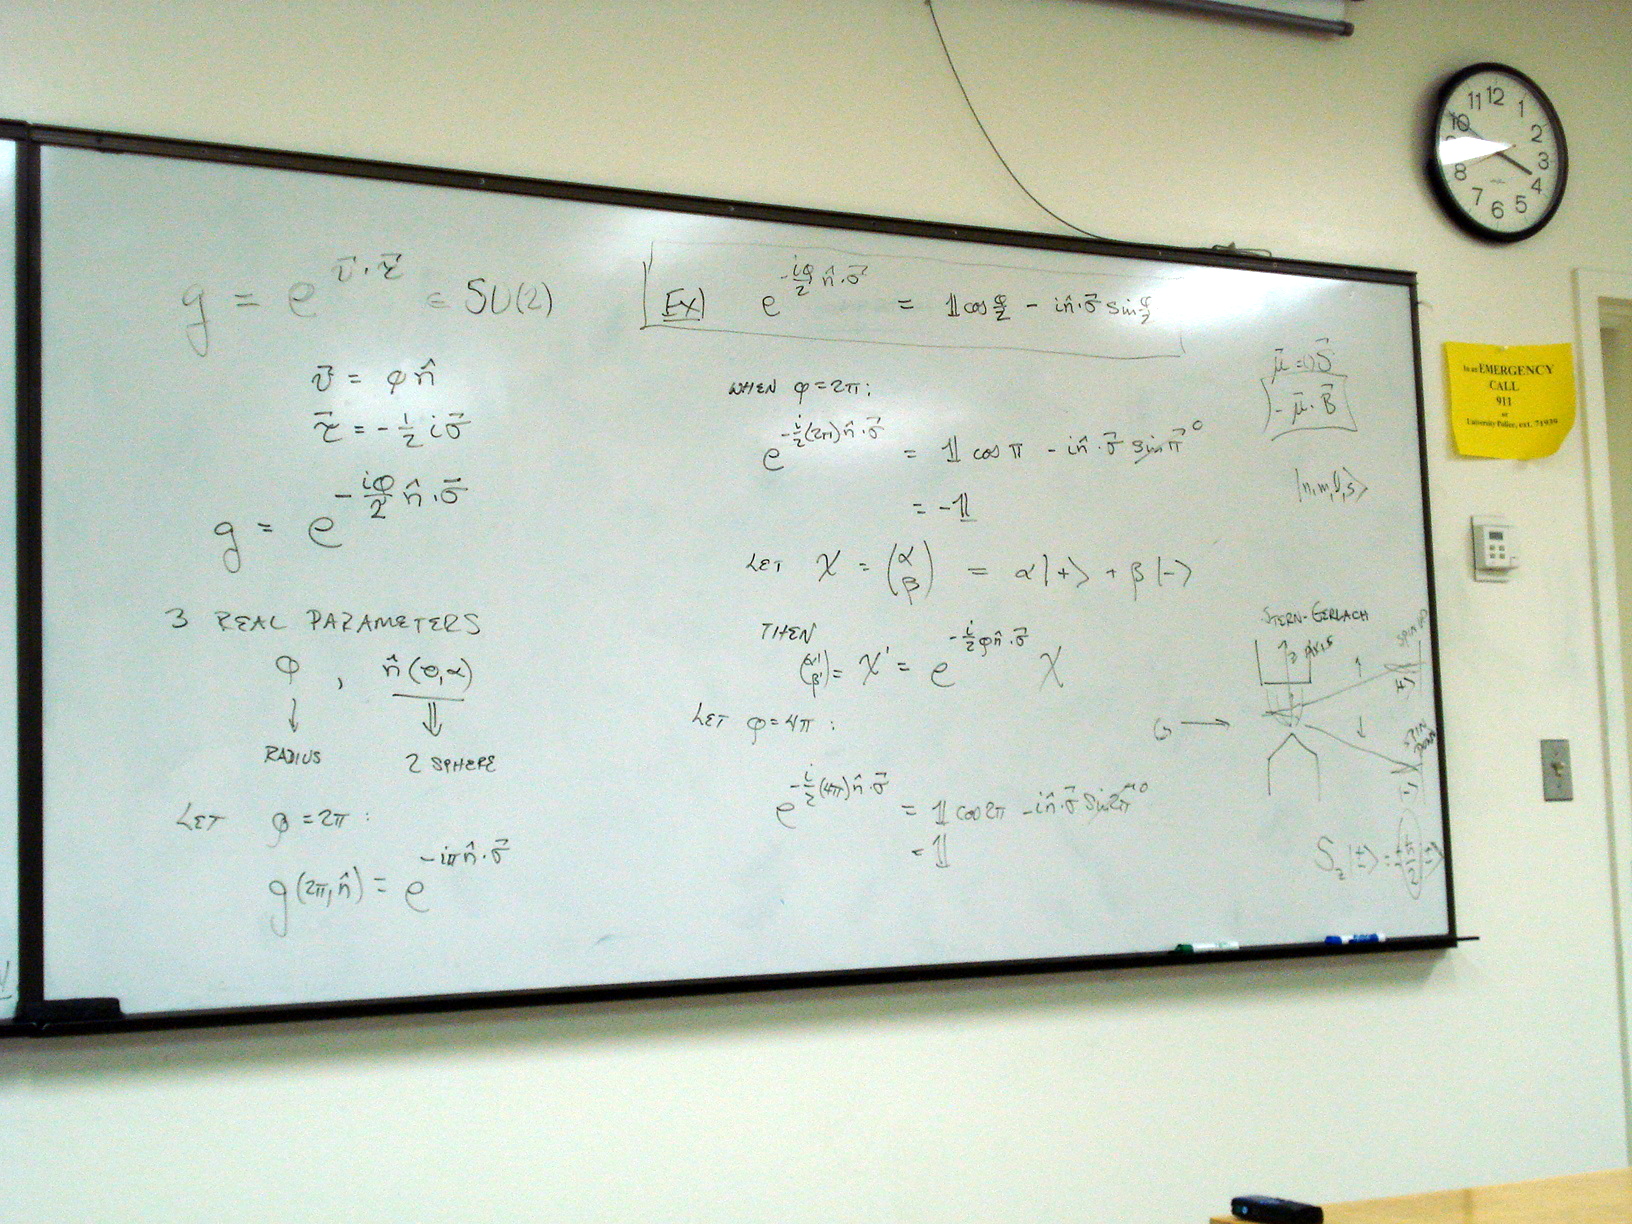 g = e^{v⃗·τ⃗} ∈ SU(2)
v⃗ = φ n̂
τ⃗ = -½ i σ⃗
g = e^{-iφ/2 n̂·σ⃗}
3 REAL PARAMETERS
φ , n̂(θ,α)
↓ ⇓
RADIUS 2 SPHERE
LET φ = 2π :
g(2π, n̂) = e^{-iπ n̂·σ⃗}
Ex) e^{-iφ/2 n̂·σ⃗} = 𝟙 cos φ/2 - i n̂·σ⃗ sin φ/2
WHEN φ = 2π :
e^{-i/2 (2π) n̂·σ⃗} = 𝟙 cos π - i n̂·σ⃗ sin π 0
= -𝟙
LET χ = (α β) = α|+⟩ + β|-⟩
THEN
(α' β') = χ' = e^{-i/2 φ n̂·σ⃗} χ
LET φ = 4π :
e^{-i/2 (4π) n̂·σ⃗} = 𝟙 cos 2π - i n̂·σ⃗ sin 2π 0
= 𝟙
- μ⃗·B⃗
|n,m,l,s⟩
STERN-GERLACH
Z AXIS
SPIN UP
|+⟩
SPIN DOWN
|-⟩
S_z|±⟩ = ±ħ/2 |±⟩
11 12 1
10 2
3
8 4
7 6 5
In an EMERGENCY
CALL
911
or
University Police, ext. 71939